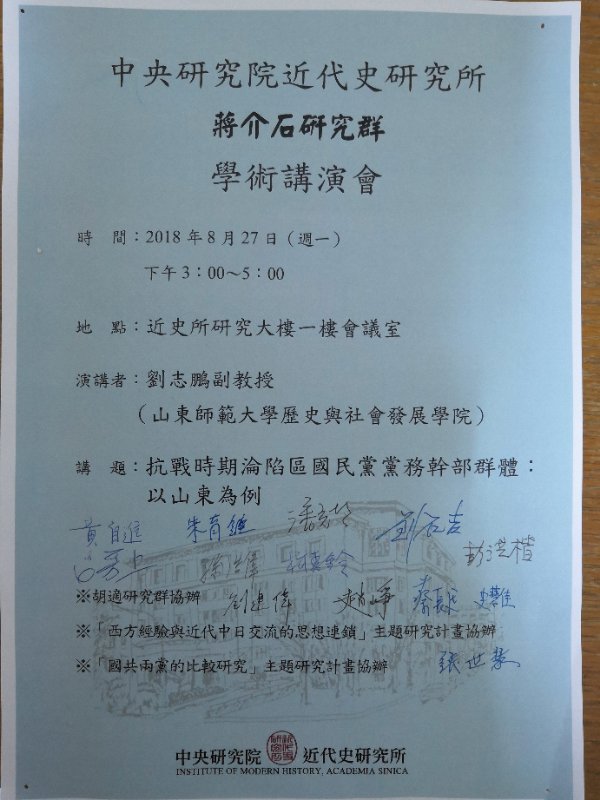 中央研究院近代史研究所
蔣介石研究群
學術講演會
時　間：2018 年 8 月 27 日（週一）
下午 3：00～5：00
地　點：近史所研究大樓一樓會議室
演講者：劉志鵬副教授
（山東師範大學歷史與社會發展學院）
講　題：抗戰時期淪陷區國民黨黨務幹部群體：
以山東為例
黃自進
※胡適研究群協辦
劉建偉
※「西方經驗與近代中日交流的思想連鎖」主題研究計畫協辦
※「國共兩黨的比較研究」主題研究計畫協辦
張世慧
中央研究院 近代史研究所
INSTITUTE OF MODERN HISTORY, ACADEMIA SINICA